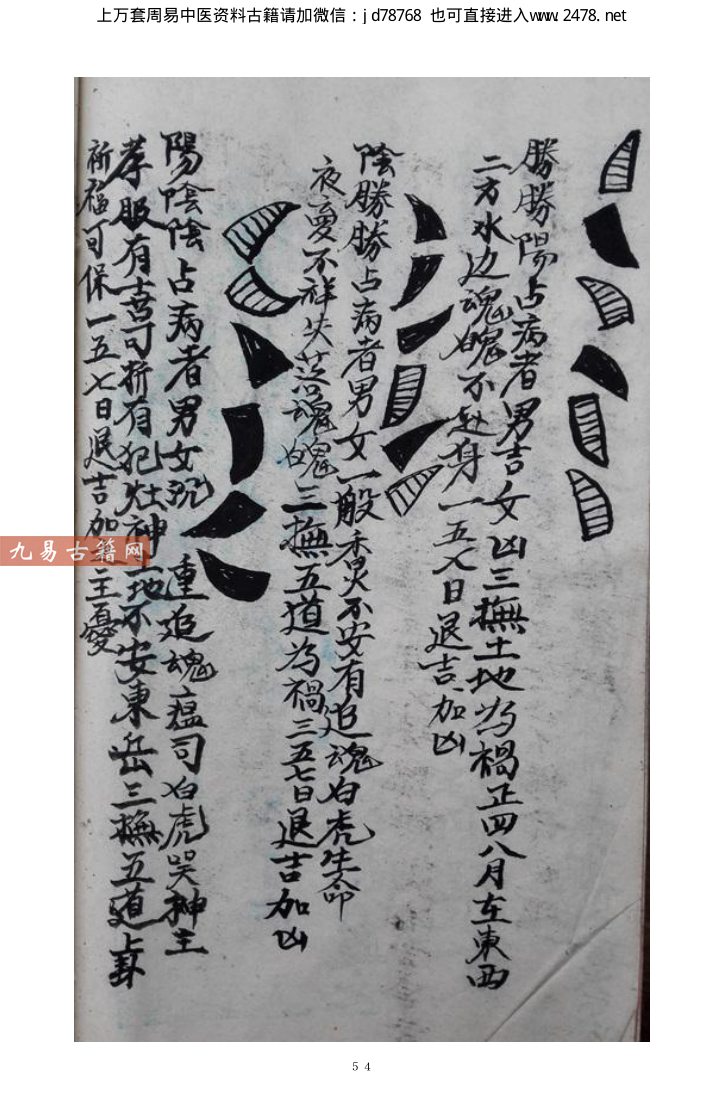 上万套周易中医资料古籍请加微信：jd78768 也可直接进入www.2478.net
勝勝陽占病者男吉女凶三撫土地为禍正四八月在東西
二方水边魂魄不赴身一五七日退吉加凶
陰勝勝占病者男女一般香火不安有追魂白虎生命
夜夢不祥失落魂魄三撫五道为禍三五七日退吉加凶
陽陰陰占病者男女沉重追魂瘟司白虎哭神主
孝服有喜可折有犯灶神土地不安東岳三撫五道上卦
祈福可保一五七日退吉加主憂
九易古籍网
54